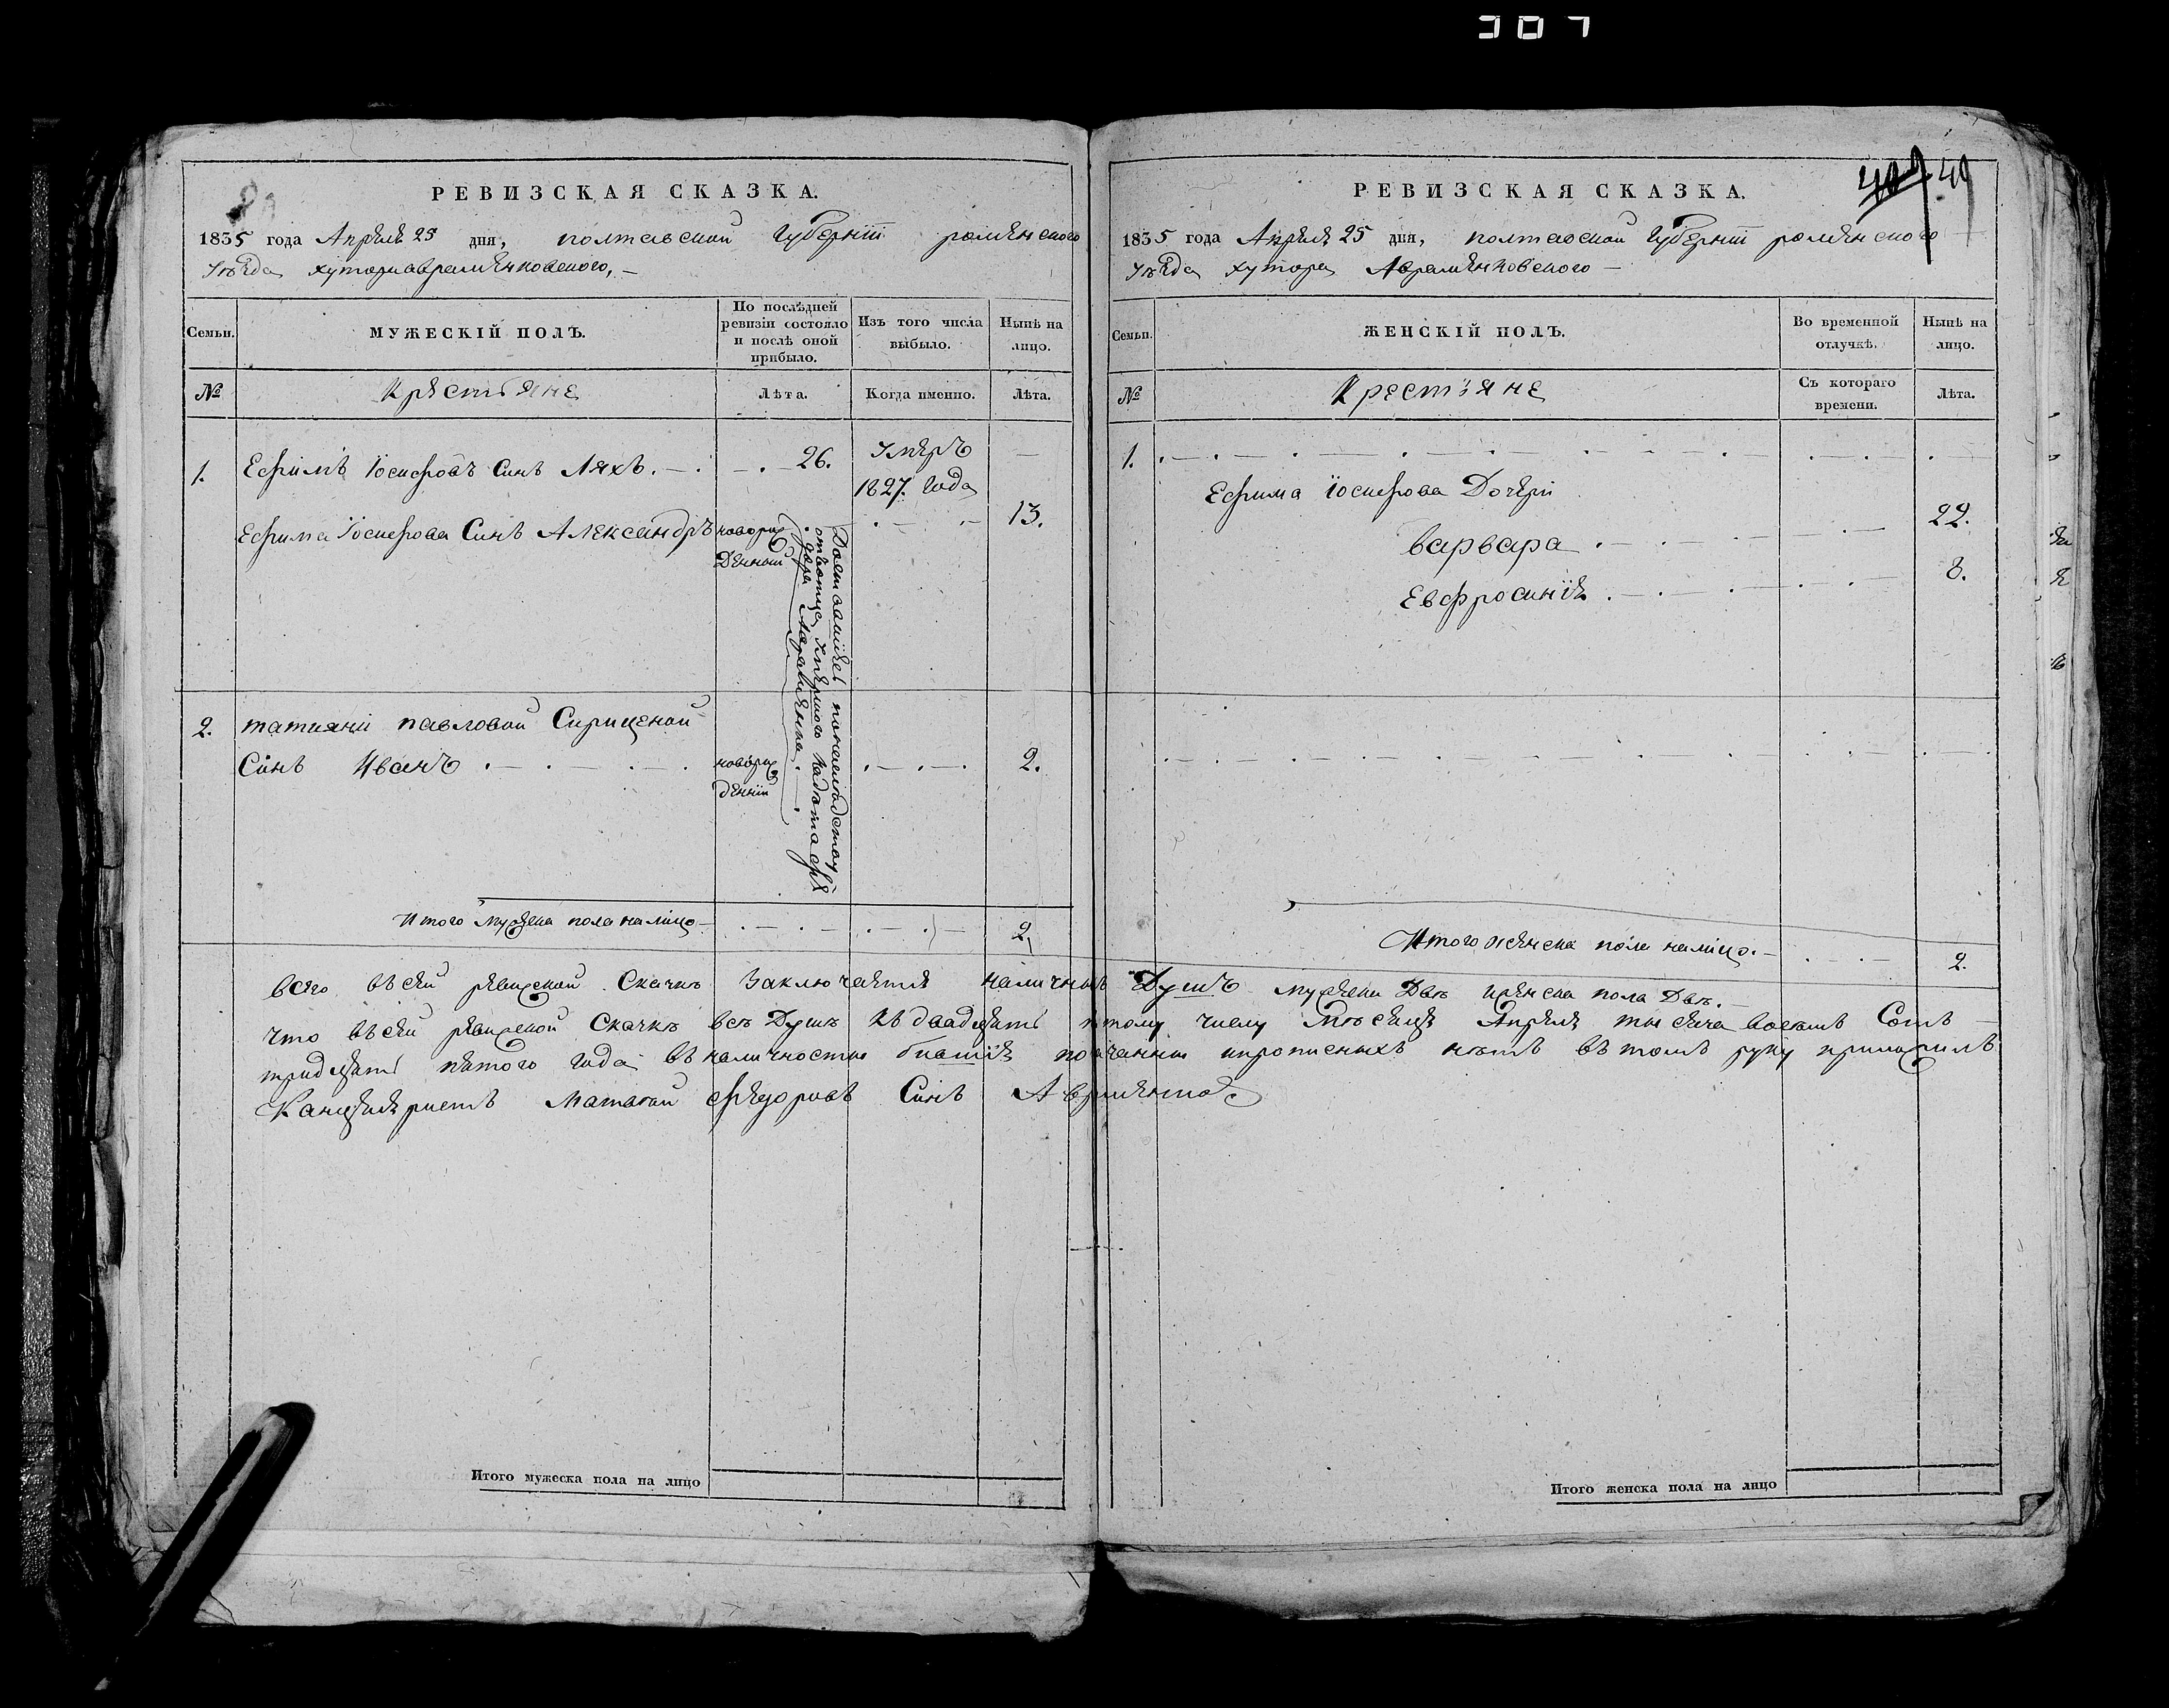 307
РЕВИЗСКАЯ СКАЗКА.
1835 года Апреля 25 дня, полтавской Губернии роменского
уезда хутора авраменковского,
Семьи.
МУЖЕСКІЙ ПОЛЪ.
По послѣдней ревизіи состояло и послѣ оной прибыло.
Изъ того числа выбыло.
Нынѣ на лицо.
№
Крестьяне
Лѣта.
Когда именно.
Лѣта.
1. Ефимъ Іосифовъ Синъ Ляхъ. 26. Умеръ
1827. Года
Ефима Іосифова Синъ Александръ новорож
денный 13.
2. татияни павловой
Синъ Иванъ новорож
денній 2.
Итого Мужеска пола налицо 2,
РЕВИЗСКАЯ СКАЗКА.
409 40
1835 года Апреля 25 дня, полтавской Губернии роменского
уезда хутора Авраменковского
Семьи.
ЖЕНСКІЙ ПОЛЪ.
Во временной отлучкѣ.
Нынѣ на лицо.
№
Крестьяне
Съ котораго времени.
Лѣта.
1.
Ефима Іосифова Дочери
варвара 22.
Евфросинія 8.
Итого женска пола налицо. 2.
всего въ сей ревизской Сказке Заключается наличныхъ Душъ мужеска Две женска пола Две.
что въ сей ревизской Сказке все Души къ двадцать пятому числу месяца Апреля тысяча восемъ Сотъ
тридцать пятого года въ наличности и прописныхъ нетъ въ томъ руку приложилъ
Канцеляристъ Матвей Федоровъ Синъ
Итого мужеска пола на лицо
Итого женска пола на лицо